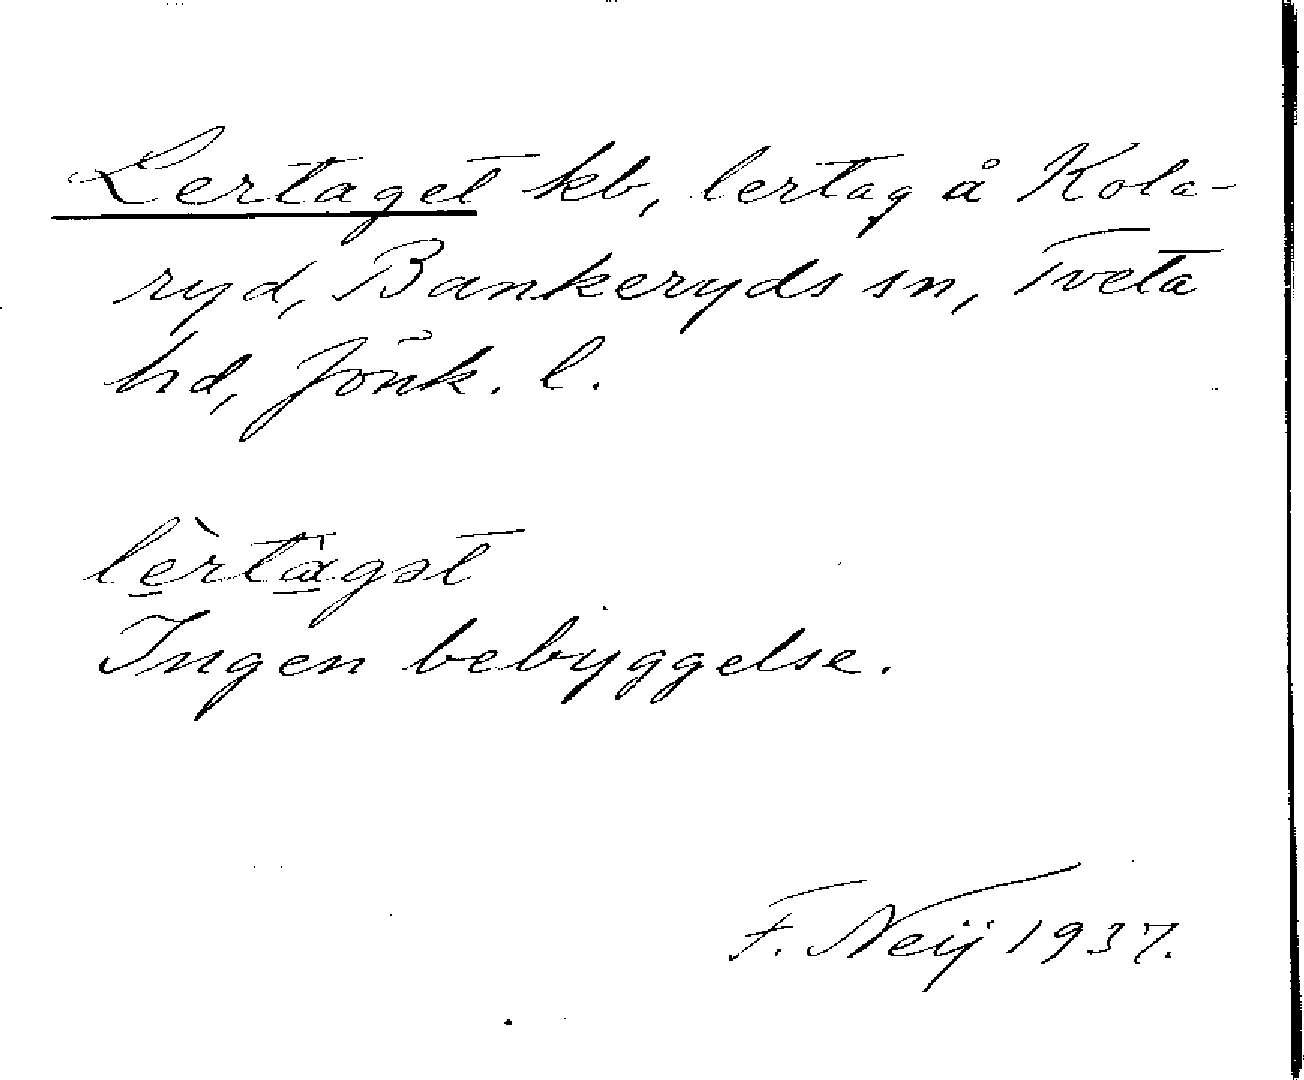 Lertaget kb, lertag å Kola-
ryd, Bankeryds sn, Tveta
hd, Jönk. l.
lè̲rtà̲gət
Ingen bebyggelse.
F. Neij 1937.